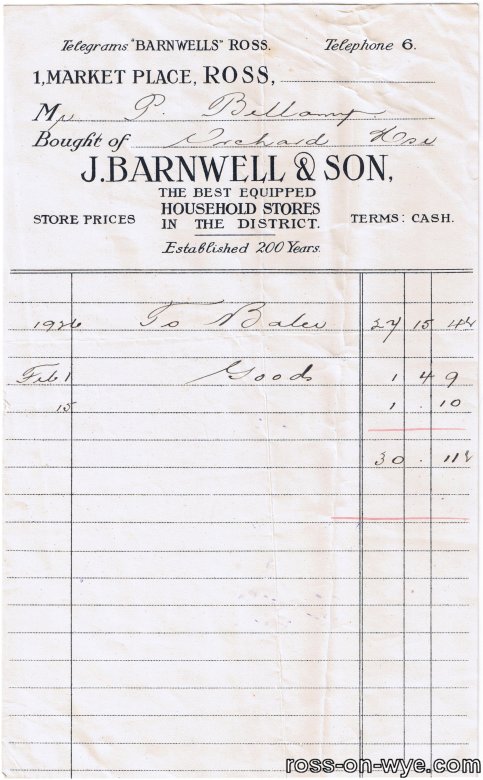 Telegrams "BARNWELLS" ROSS. Telephone 6.
1, MARKET PLACE, ROSS,
Mr P. Bellamy
Bought of Orchard Hse
J. BARNWELL & SON,
THE BEST EQUIPPED
STORE PRICES HOUSEHOLD STORES TERMS: CASH.
IN THE DISTRICT.
Established 200 Years.
1926 To Balce 27 15 4½
Feb 1 Goods 1 4 9
15 1 10
30 . 11½
ross-on-wye.com